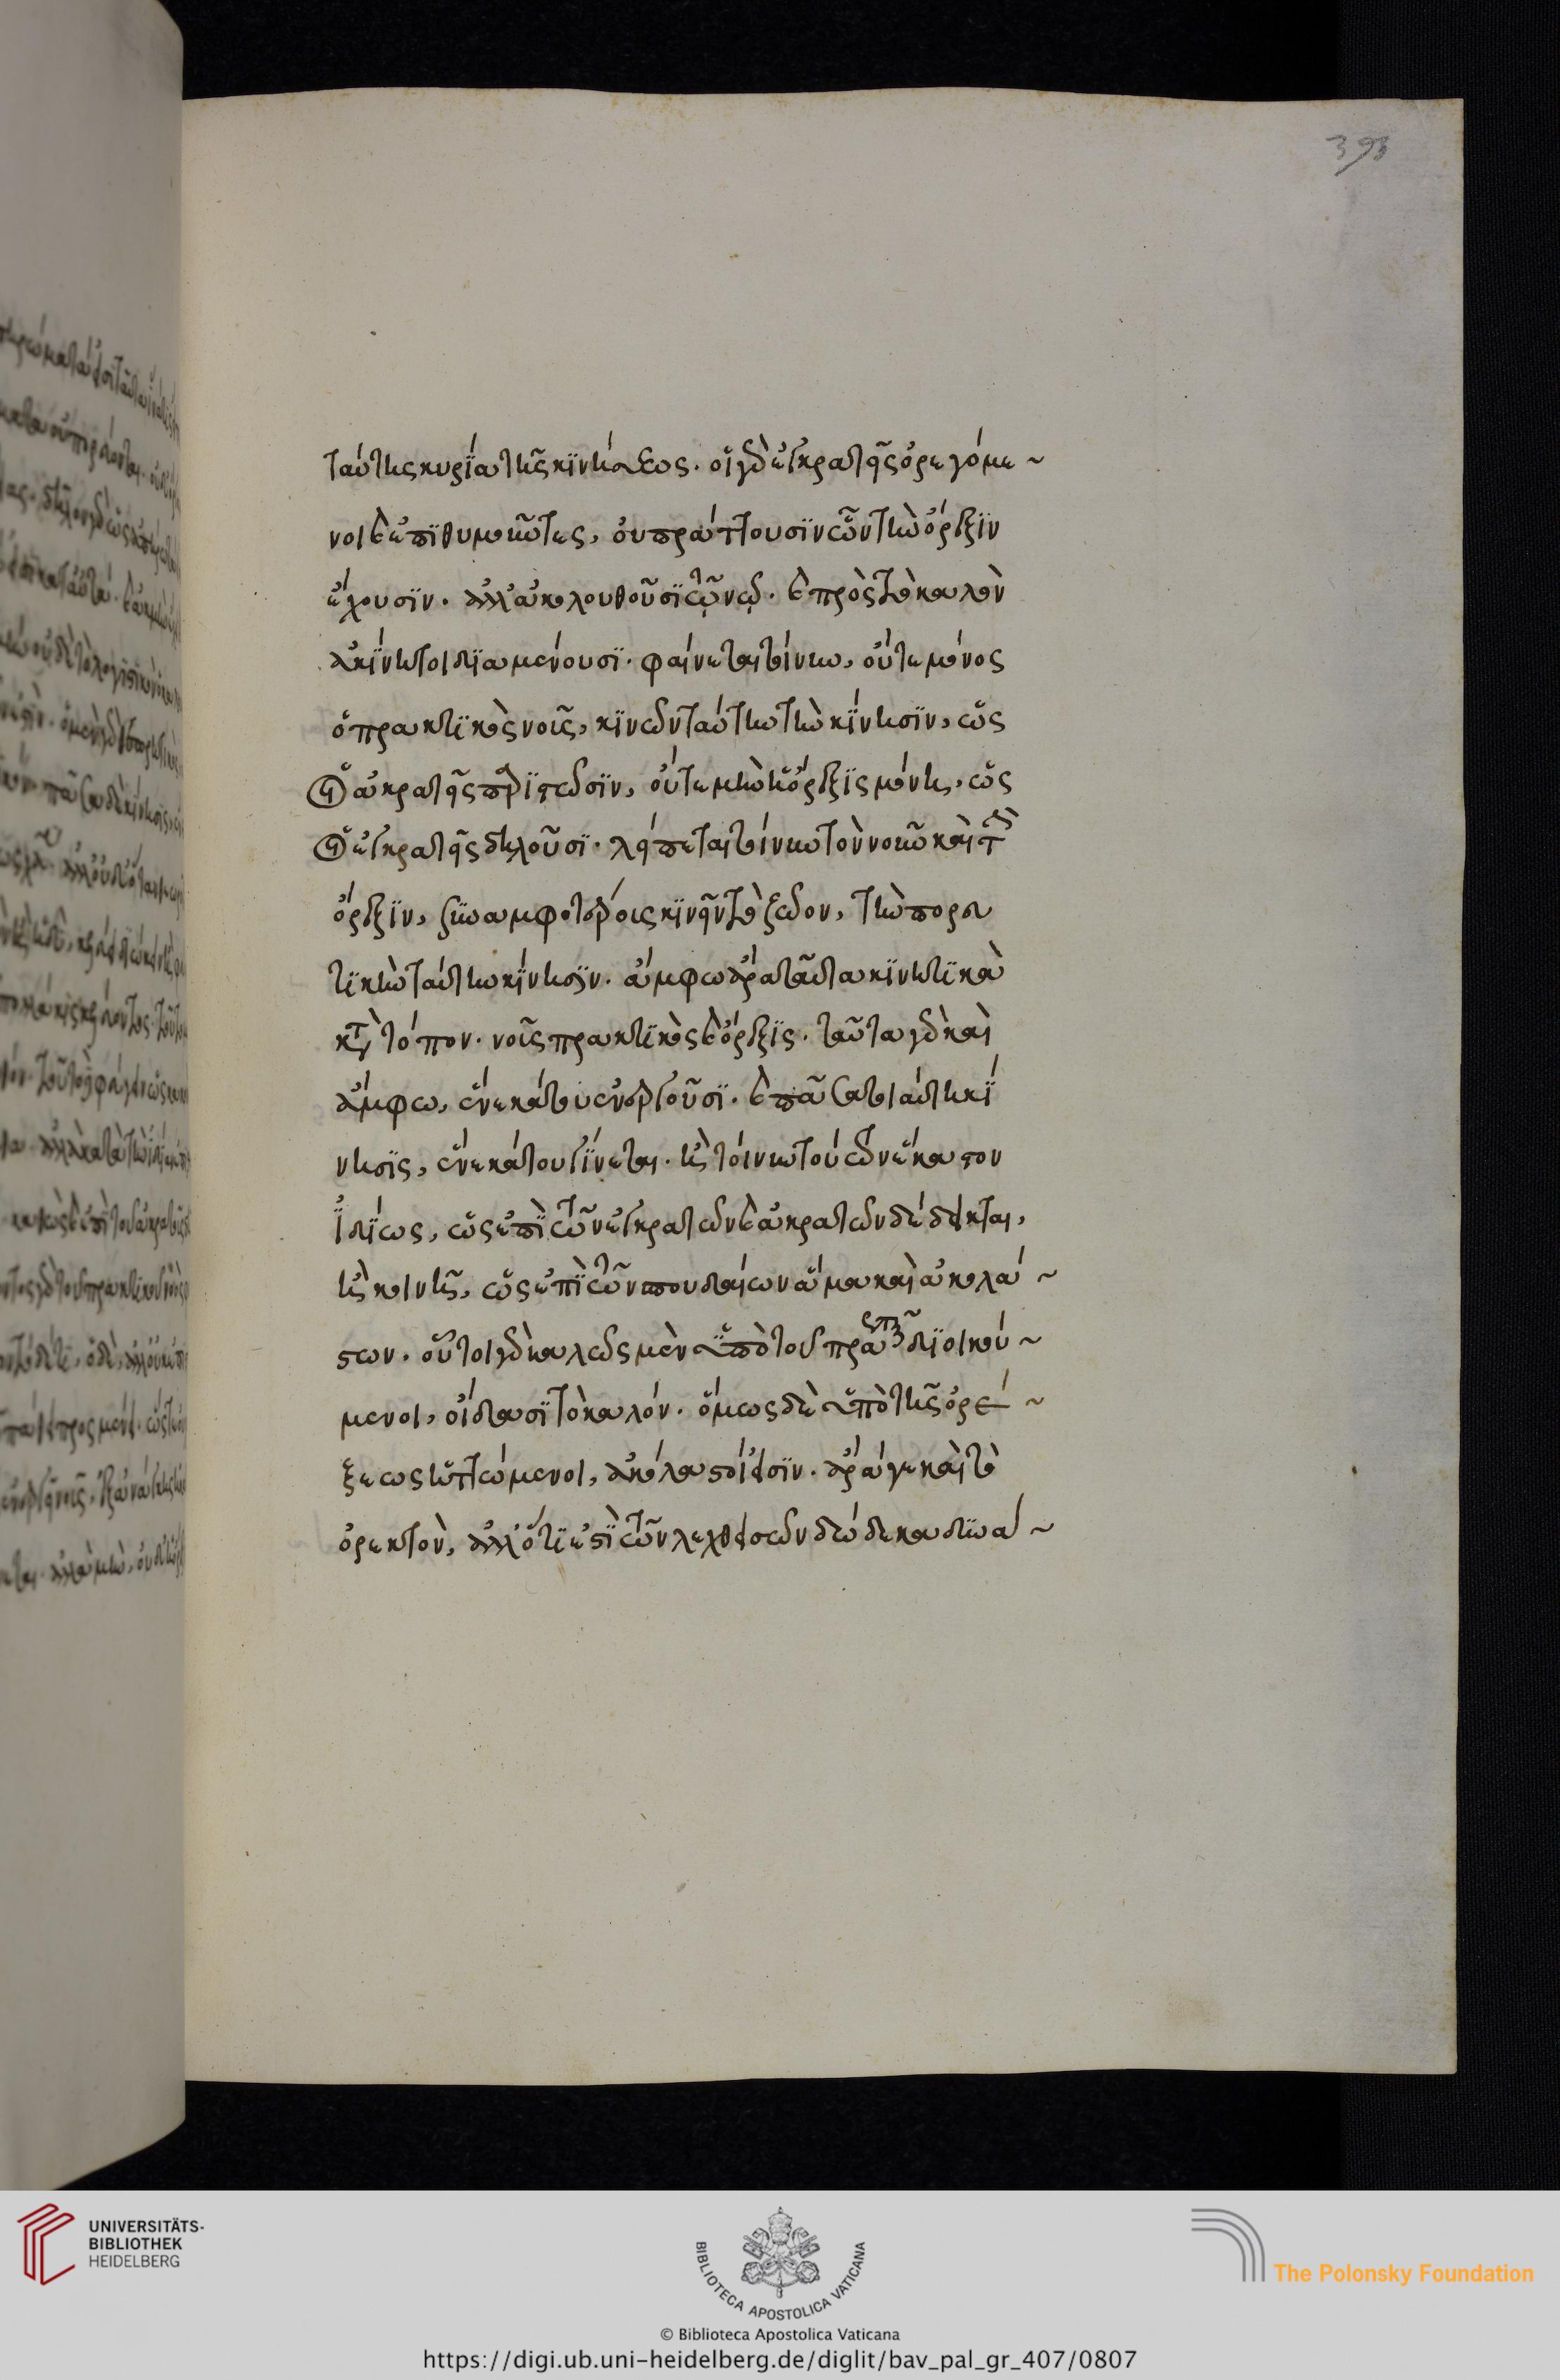 393
ταύτης κυρία τῆς κινήσεως. οἱ γὰρ ἐγκρατεῖς ὀρεγόμε ~
νοι καὶ ἐπιθυμοῦντες, οὐ πράττουσιν ὧν τὴν ὄρεξιν
ἔχουσιν. ἀλλ' ἀκολουθοῦσι τῷ νῷ. καὶ πρὸς τὸ καλὸν
ἀκίνητοι διαμένουσι. φαίνεται τοίνυν, οὔτε μόνος
ὁ πρακτικὸς νοῦς, κινῶν ταύτην τὴν κίνησιν, ὡς
οἱ ἀκρατεῖς παριστῶσιν, οὔτε μὴν ἡ ὄρεξις μόνη, ὡς
οἱ ἐγκρατεῖς δηλοῦσι. λείπεται τοίνυν τὸν νοῦν καὶ τὴν
ὄρεξιν, συναμφοτέροις κινεῖν τὸ ζῶον, τὴν πορευ
τικὴν ταύτην κίνησιν. ἄμφω ἄρα ταῦτα κινητικὰ
κατὰ τόπον. νοῦς πρακτικὸς καὶ ὄρεξις. ταῦτα γὰρ καὶ
ἄμφω, ἕνεκά του ἐνεργοῦσι. καὶ πᾶσα τοιαύτη κί
νησις, ἕνεκά του γίνεται. ἢ τοίνυν τούτων ἕκαστον
ἰδίως, ὡς ἐπὶ τῶν ἐγκρατῶν καὶ ἀκρατῶν δέδεικται,
ἢ κοινῇ, ὡς ἐπὶ τῶν σπουδαίων ἅμα καὶ ἀκολά ~
στων. οὗτοι γὰρ καλῶς μὲν ὑπὸ τοῦ πρα διοικού ~
μενοι, οἴδασι τὸ καλόν. ὅμως δὲ ὑπὸ τῆς ὀρέ ~
ξεως ἡττώμενοι, ἀκόλαστοί εἰσιν. ἆρά γε καὶ τὸ
ὀρεκτὸν, ἀλλ' ὅτι ἐπὶ τῶν λεχθεισῶν δώδεκα δυνά ~
UNIVERSITÄTS-
BIBLIOTHEK
HEIDELBERG
BIBLIOTECA APOSTOLICA VATICANA
The Polonsky Foundation
© Biblioteca Apostolica Vaticana
https://digi.ub.uni-heidelberg.de/diglit/bav_pal_gr_407/0807